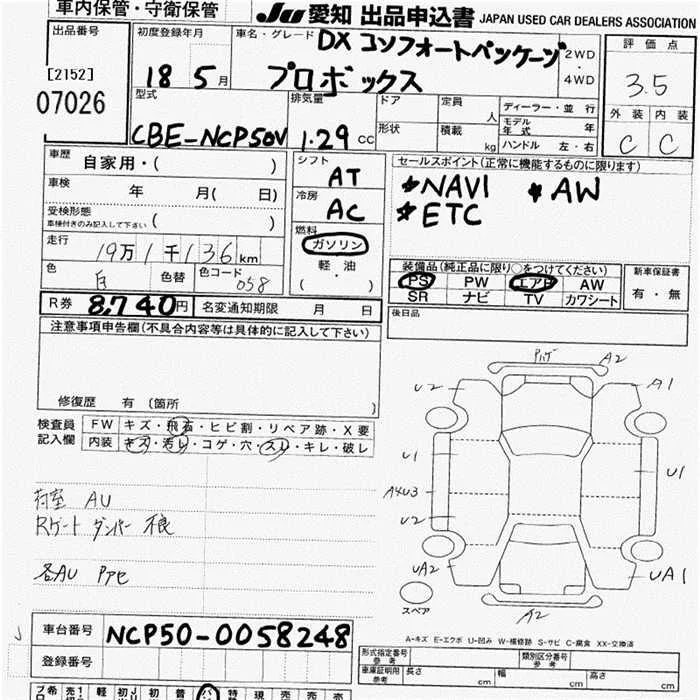 車内保管・守衛保管
JU 愛知 出品申込書 JAPAN USED CAR DEALERS ASSOCIATION
出品番号
[2152]
07026
初度登録年月
18 5月
車名・グレード
DX コンフォートパッケージ
プロボックス
2WD
・
4WD
評価点
3.5
外装 内装
C C
型式
CBE-NCP50V
排気量
1.29 CC
ドア
形状
定員
人
積載
kg
ディーラー・並行
モデル年式 年
ハンドル 左・右
車歴
自家用・( )
車検
年 月( 日)
受検形態
車検付きのみ記入して下さい ( )
走行
19万1千136km
色
白
色替
色コード
058
シフト
AT
冷房
AC
燃料
ガソリン
軽・油
( ・ )
セールスポイント(正常に機能するものに限ります)
*NAVI *AW
*ETC
装備品(純正品に限り○をつけてください)
PS PW エアB AW
SR ナビ TV カワシート
新車保証書
有・無
R券 8,740円 名変通知期限 月 日
後日品
注意事項申告欄(不具合内容等は具体的に記入して下さい)
修復歴 有 (箇所 )
検査員
記入欄
FW キズ・飛石・ヒビ割・リペア跡・X要
内装 キズ・汚レ・コゲ・穴・スレ・キレ・破レ
荷室 AU
Rゲート ダンパー 不良
各AU Pアセ
A2
U2
A1
U1
U1
A4U3
U2
UA2
UA1
A2
スペア
A-キズ E-エクボ U-凹み W-補修跡 S-サビ C-腐食 XX-交換済
車台番号 NCP50-0058248
登録番号
形式指定番号
参考
類別区分番号
参考
車庫証明用
参考
長さ cm
幅 cm
高さ cm